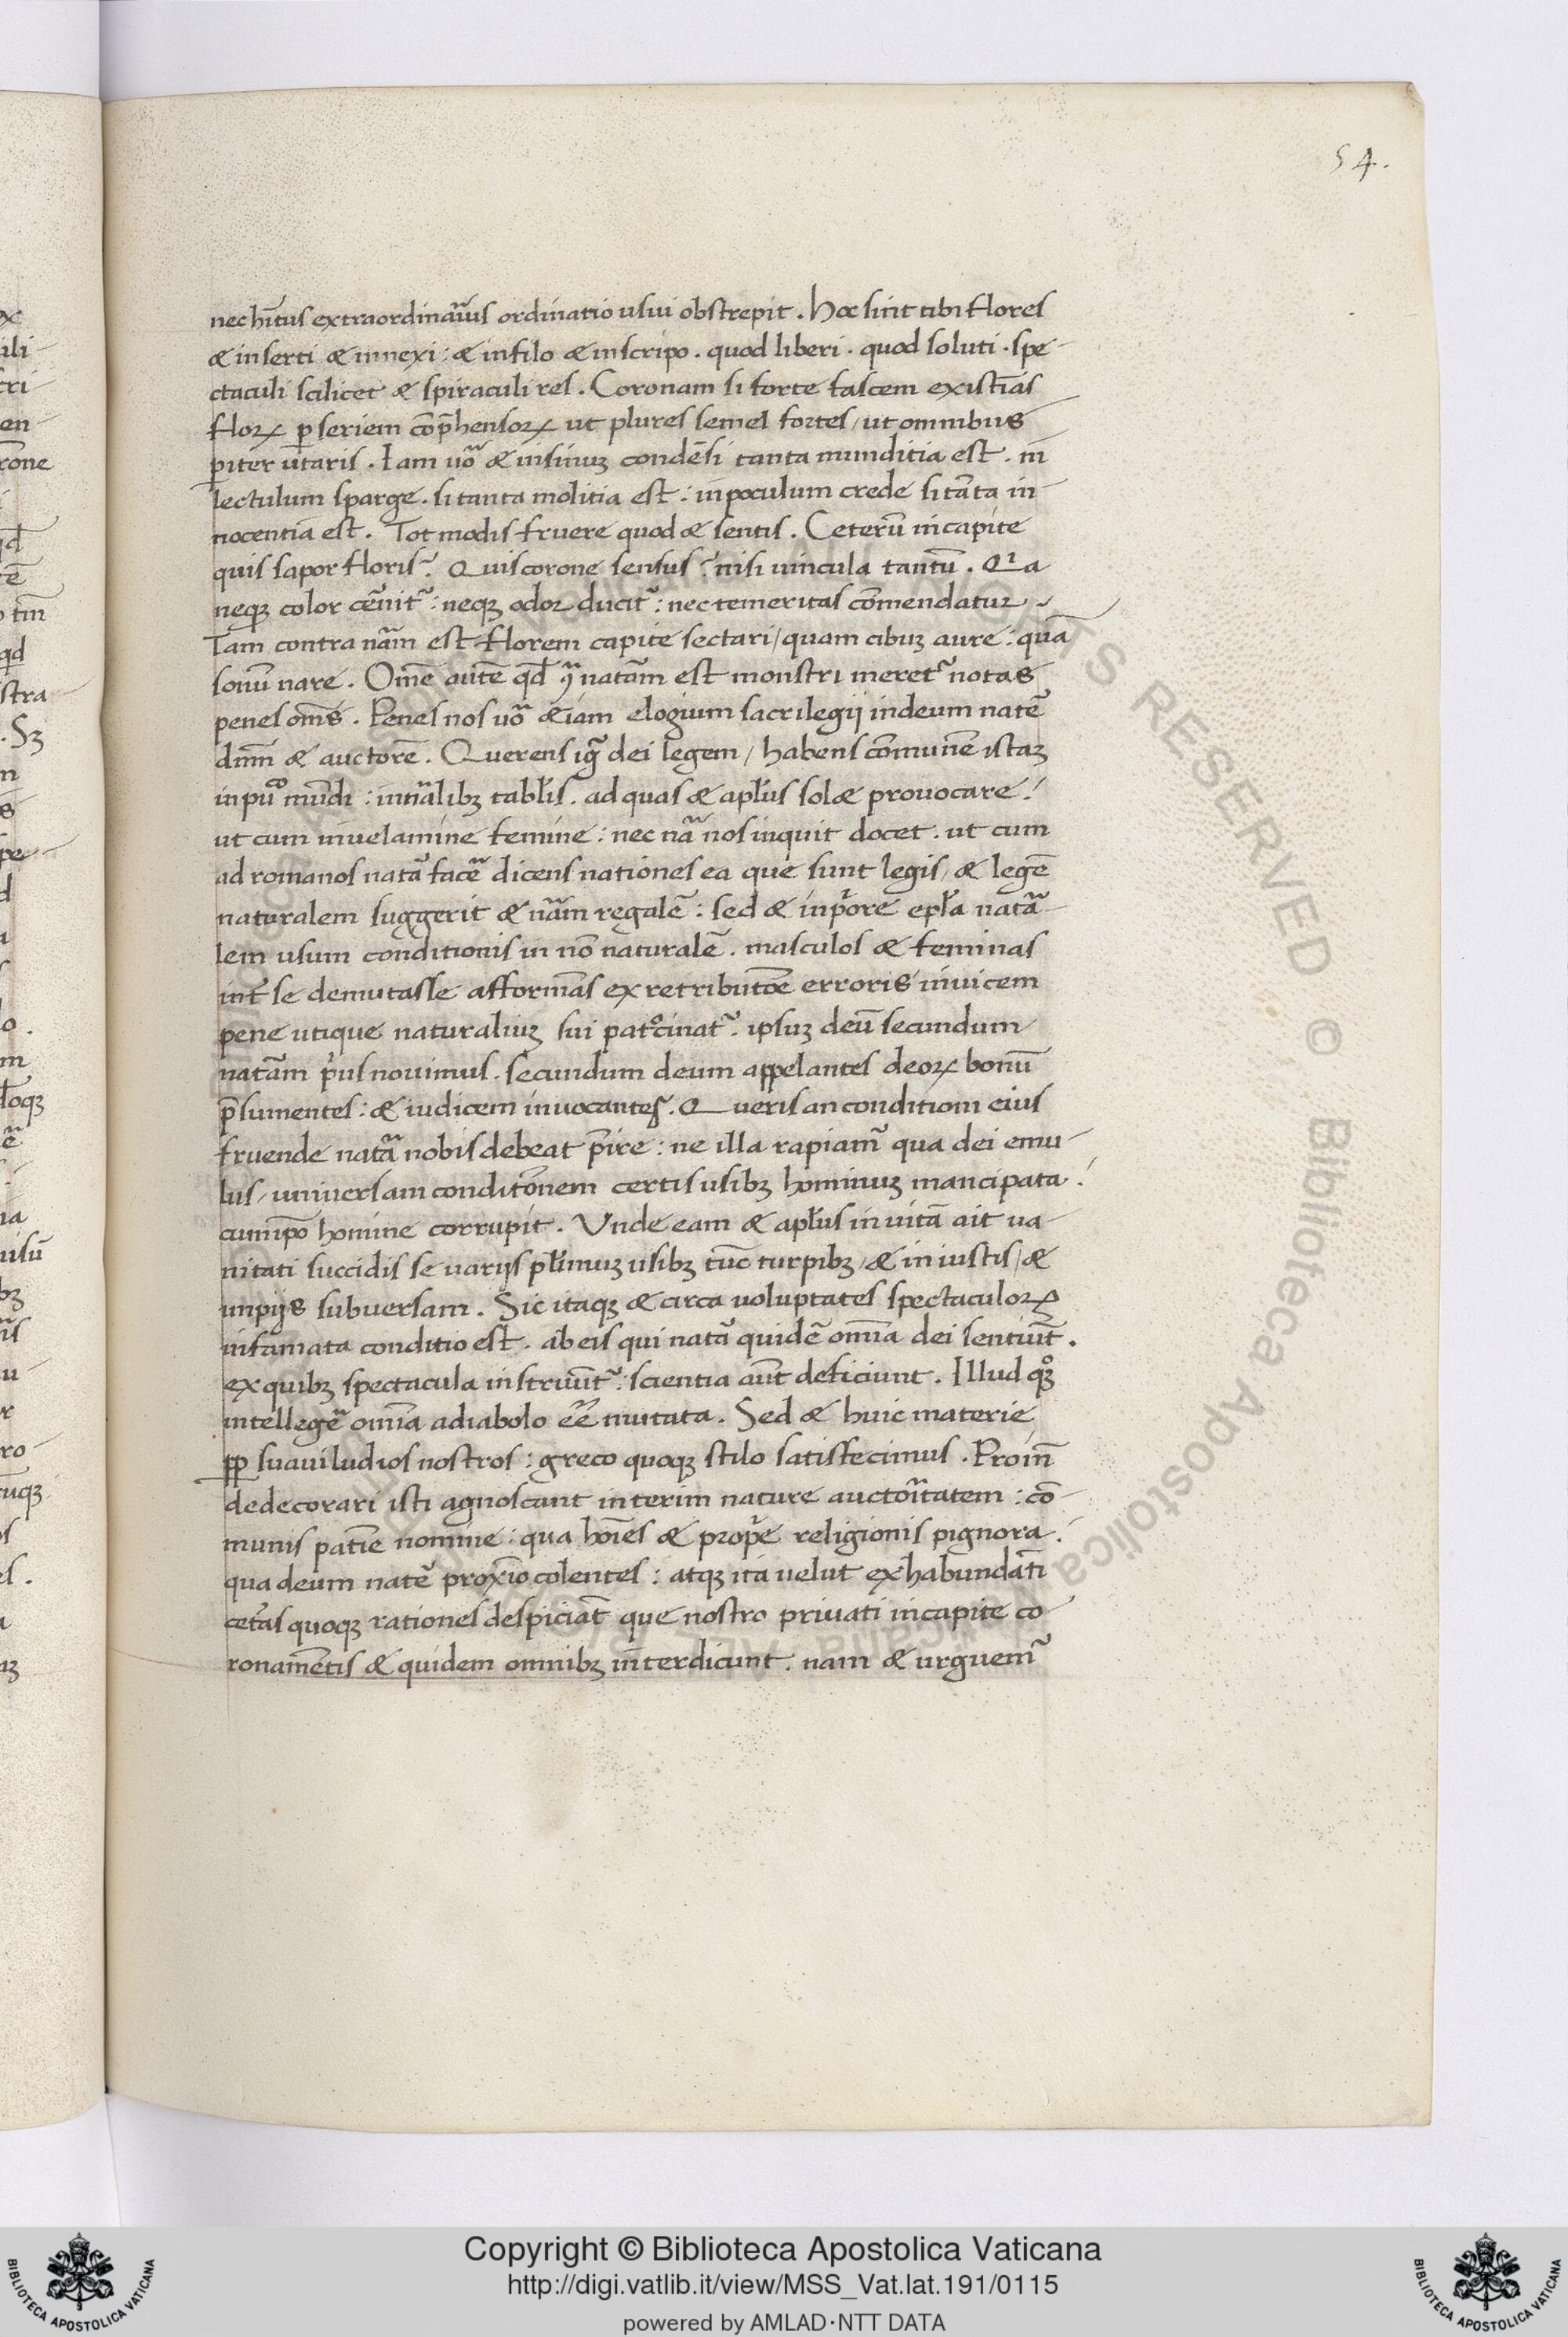 54.
nec hitus extraordinarius ordinatio usui obstrepit . Hoc sint tibi flores
& inserti & innexi : & in filo & in scripo . quod liberi . quod soluti . spe-
ctaculi scilicet & spiraculi res . Coronam si forte fascem existias
florꝝ ꝑ seriem cōp̄hensorꝝ ut plures semel fortes / ut omnibus
ꝑiter utaris . Iam uō & in sinuꝫ condēsi tanta munditia est . in
lectulum sparge . si tanta molitia est : in poculum crede si tāta in-
nocentia est . Tot modis fruere quod & sentis . Ceterū in capite
quis sapor floris ? Quis corone sensus ? nisi uincula tantū . Qia
neqꝫ color cernit᷑ : neqꝫ odor ducit᷑ : nec temeritas cōmendatur .
Tam contra nām est florem capite sectari / quam cibuꝫ aure : quā
sonū nare . Omē autē qd̄ ꝯ natām est monstri meret᷑ notas
penes oms̄ . Penes nos uō etiam elogium sacrilegij in deum natē
dnm̄ & auctorē . Querens igr̄ dei legem / habens cōmunē istaꝫ
in puᷤᵒ mūdi : in tn̄alibꝫ tabl̄is . ad quas & apl̄us solæ prouocare .
ut cum in uelamine femine : nec nā nos inquit docet . ut cum
ad romanos natā facē dicens nationes ea que sunt legis / & legē
naturalem suggerit & nām regalē : sed & in pore epl̄a natā-
lem usum conditionis in nō naturalē . masculos & feminas
int̄ se demutasse afformās ex retributōe erroris inuicem
pene utique naturaliuꝫ sui patrocinat᷑ . ipsuꝫ deū secundum
natām prius nouimus . secundum deum appelantes deorꝝ bonū
p̄sumentes : & iudicem inuocantes . Queris an conditioni eius
fruende natā nobis debeat p̄ire : ne illa rapiam᷑ qua dei emu-
lus / uniuersam conditōnem certis usibꝫ hominuꝫ mancipata .
cum ip̄o homine corrupit . Vnde eam & apl̄us inuitā ait ua-
nitati succidisse uarijs pl̄imuꝫ usibꝫ tūc turpibꝫ / & iniustis / &
impijs subuersam . Sic itaqꝫ & circa uoluptates spectaculorꝝ
infamata conditio est . ab eis qui natā quidē omīa dei sentiūt .
ex quibꝫ spectacula instruūt᷑ : scientia aūt deficiunt . Illud qꝫᵒ
intellegē omīa a diabolo eē̄ mutata . Sed & huic materie
ꝓp suauiludios nostros : greco quoqꝫ stilo satisfecimus . Proīn
dedecorari isti agnoscant interim nature auctoritatem : cō-
munis patīe nomine : qua hoīes & proprie religionis pignora .
qua deum natē proxīo colentes : atqꝫ ita uelut ex habundāti
cet̄as quoqꝫ rationes despiciāt que nostro priuati in capite co-
ronamētis & quidem omnibꝫ interdicunt . nam & urguem᷑
Copyright © Biblioteca Apostolica Vaticana
http://digi.vatlib.it/view/MSS_Vat.lat.191/0115
powered by AMLAD·NTT DATA